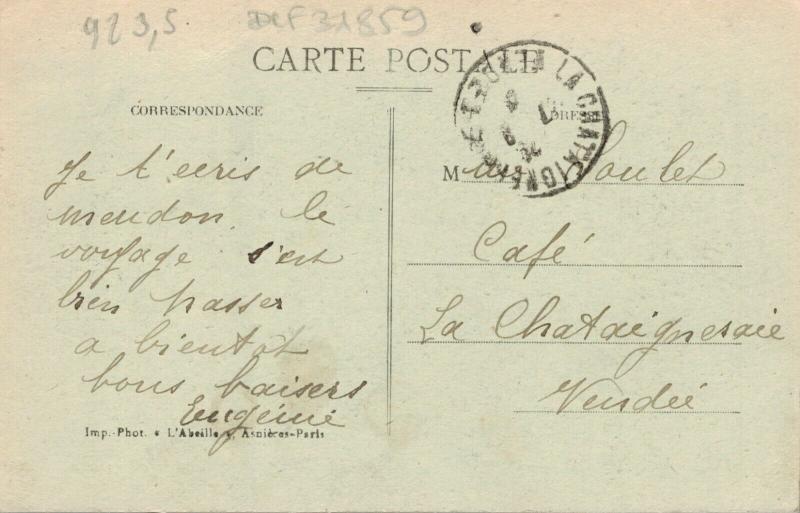 923,5 DLF31859
CARTE POSTALE
LA CHATAIGNERAIE
CORRESPONDANCE
ADRESSE
Je t'ecris de
meudon. le
voyage s'est
bien passer
a bientot
bons baisers
Eugénie
Imp.-Phot. « L'Abeille », Asnières-Paris
M Soulet
Café
La Chataigneraie
Vendée